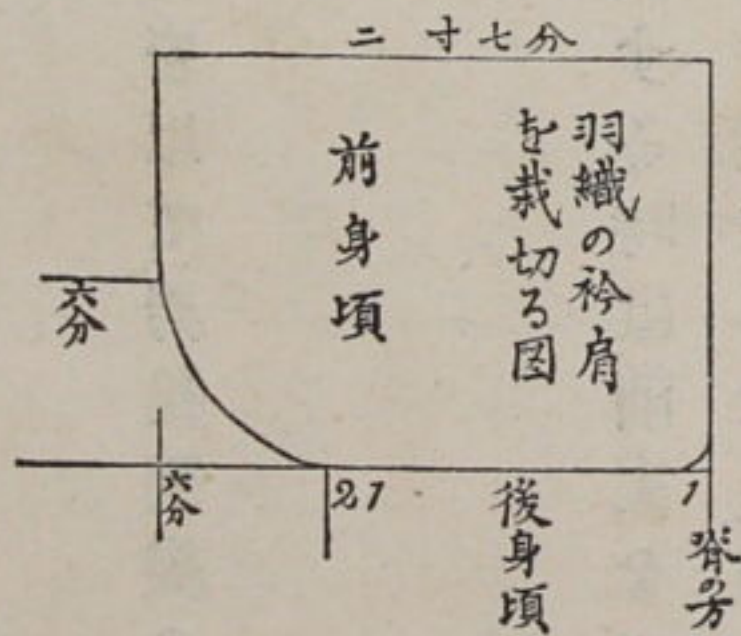 二寸七分
羽織の衿肩
を裁切る図
前身頃
六分
六分
21
後身頃
1
脊の方